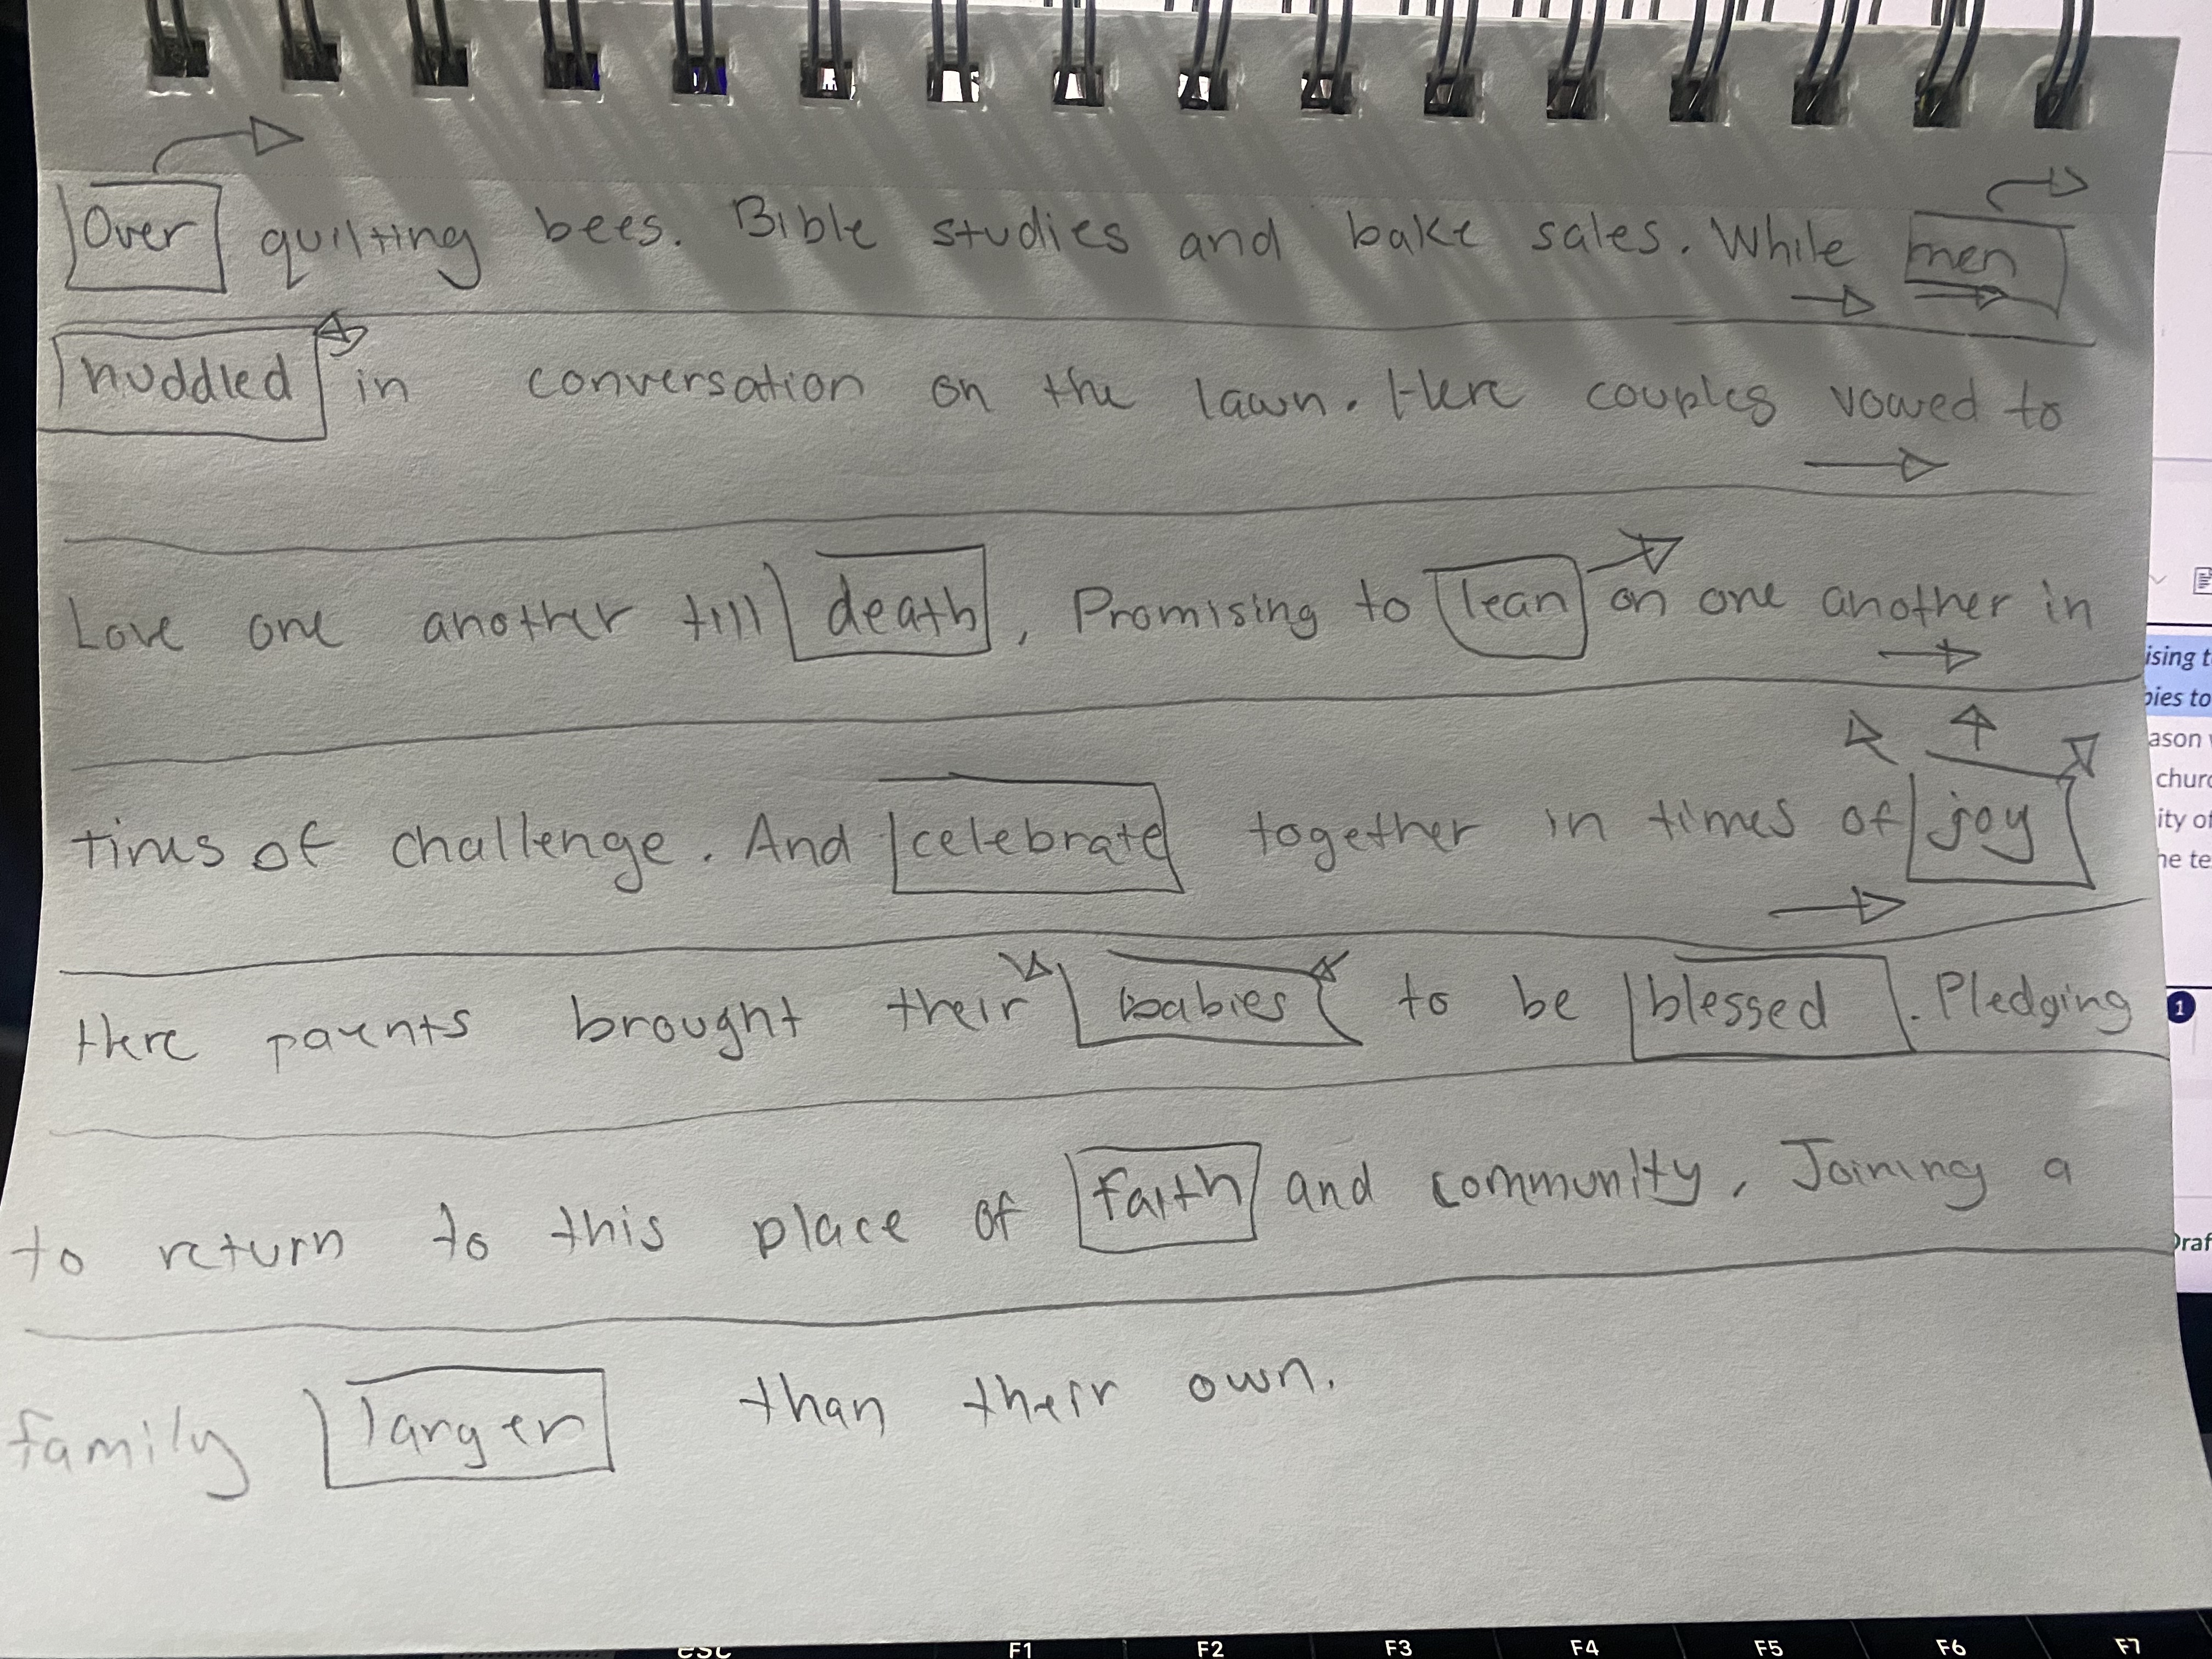 Over quilting bees. Bible studies and bake sales. While men
huddled in conversation on the lawn. Here couples vowed to
Love one another till death, Promising to lean on one another in
times of challenge. And celebrate together in times of joy
Here parents brought their babies to be blessed. Pledging
to return to this place of faith and community, Joining a
family larger than their own.
ising t
bies to
ason
churc
ity of
he te
1
Draf
esc F1 F2 F3 F4 F5 F6 F7